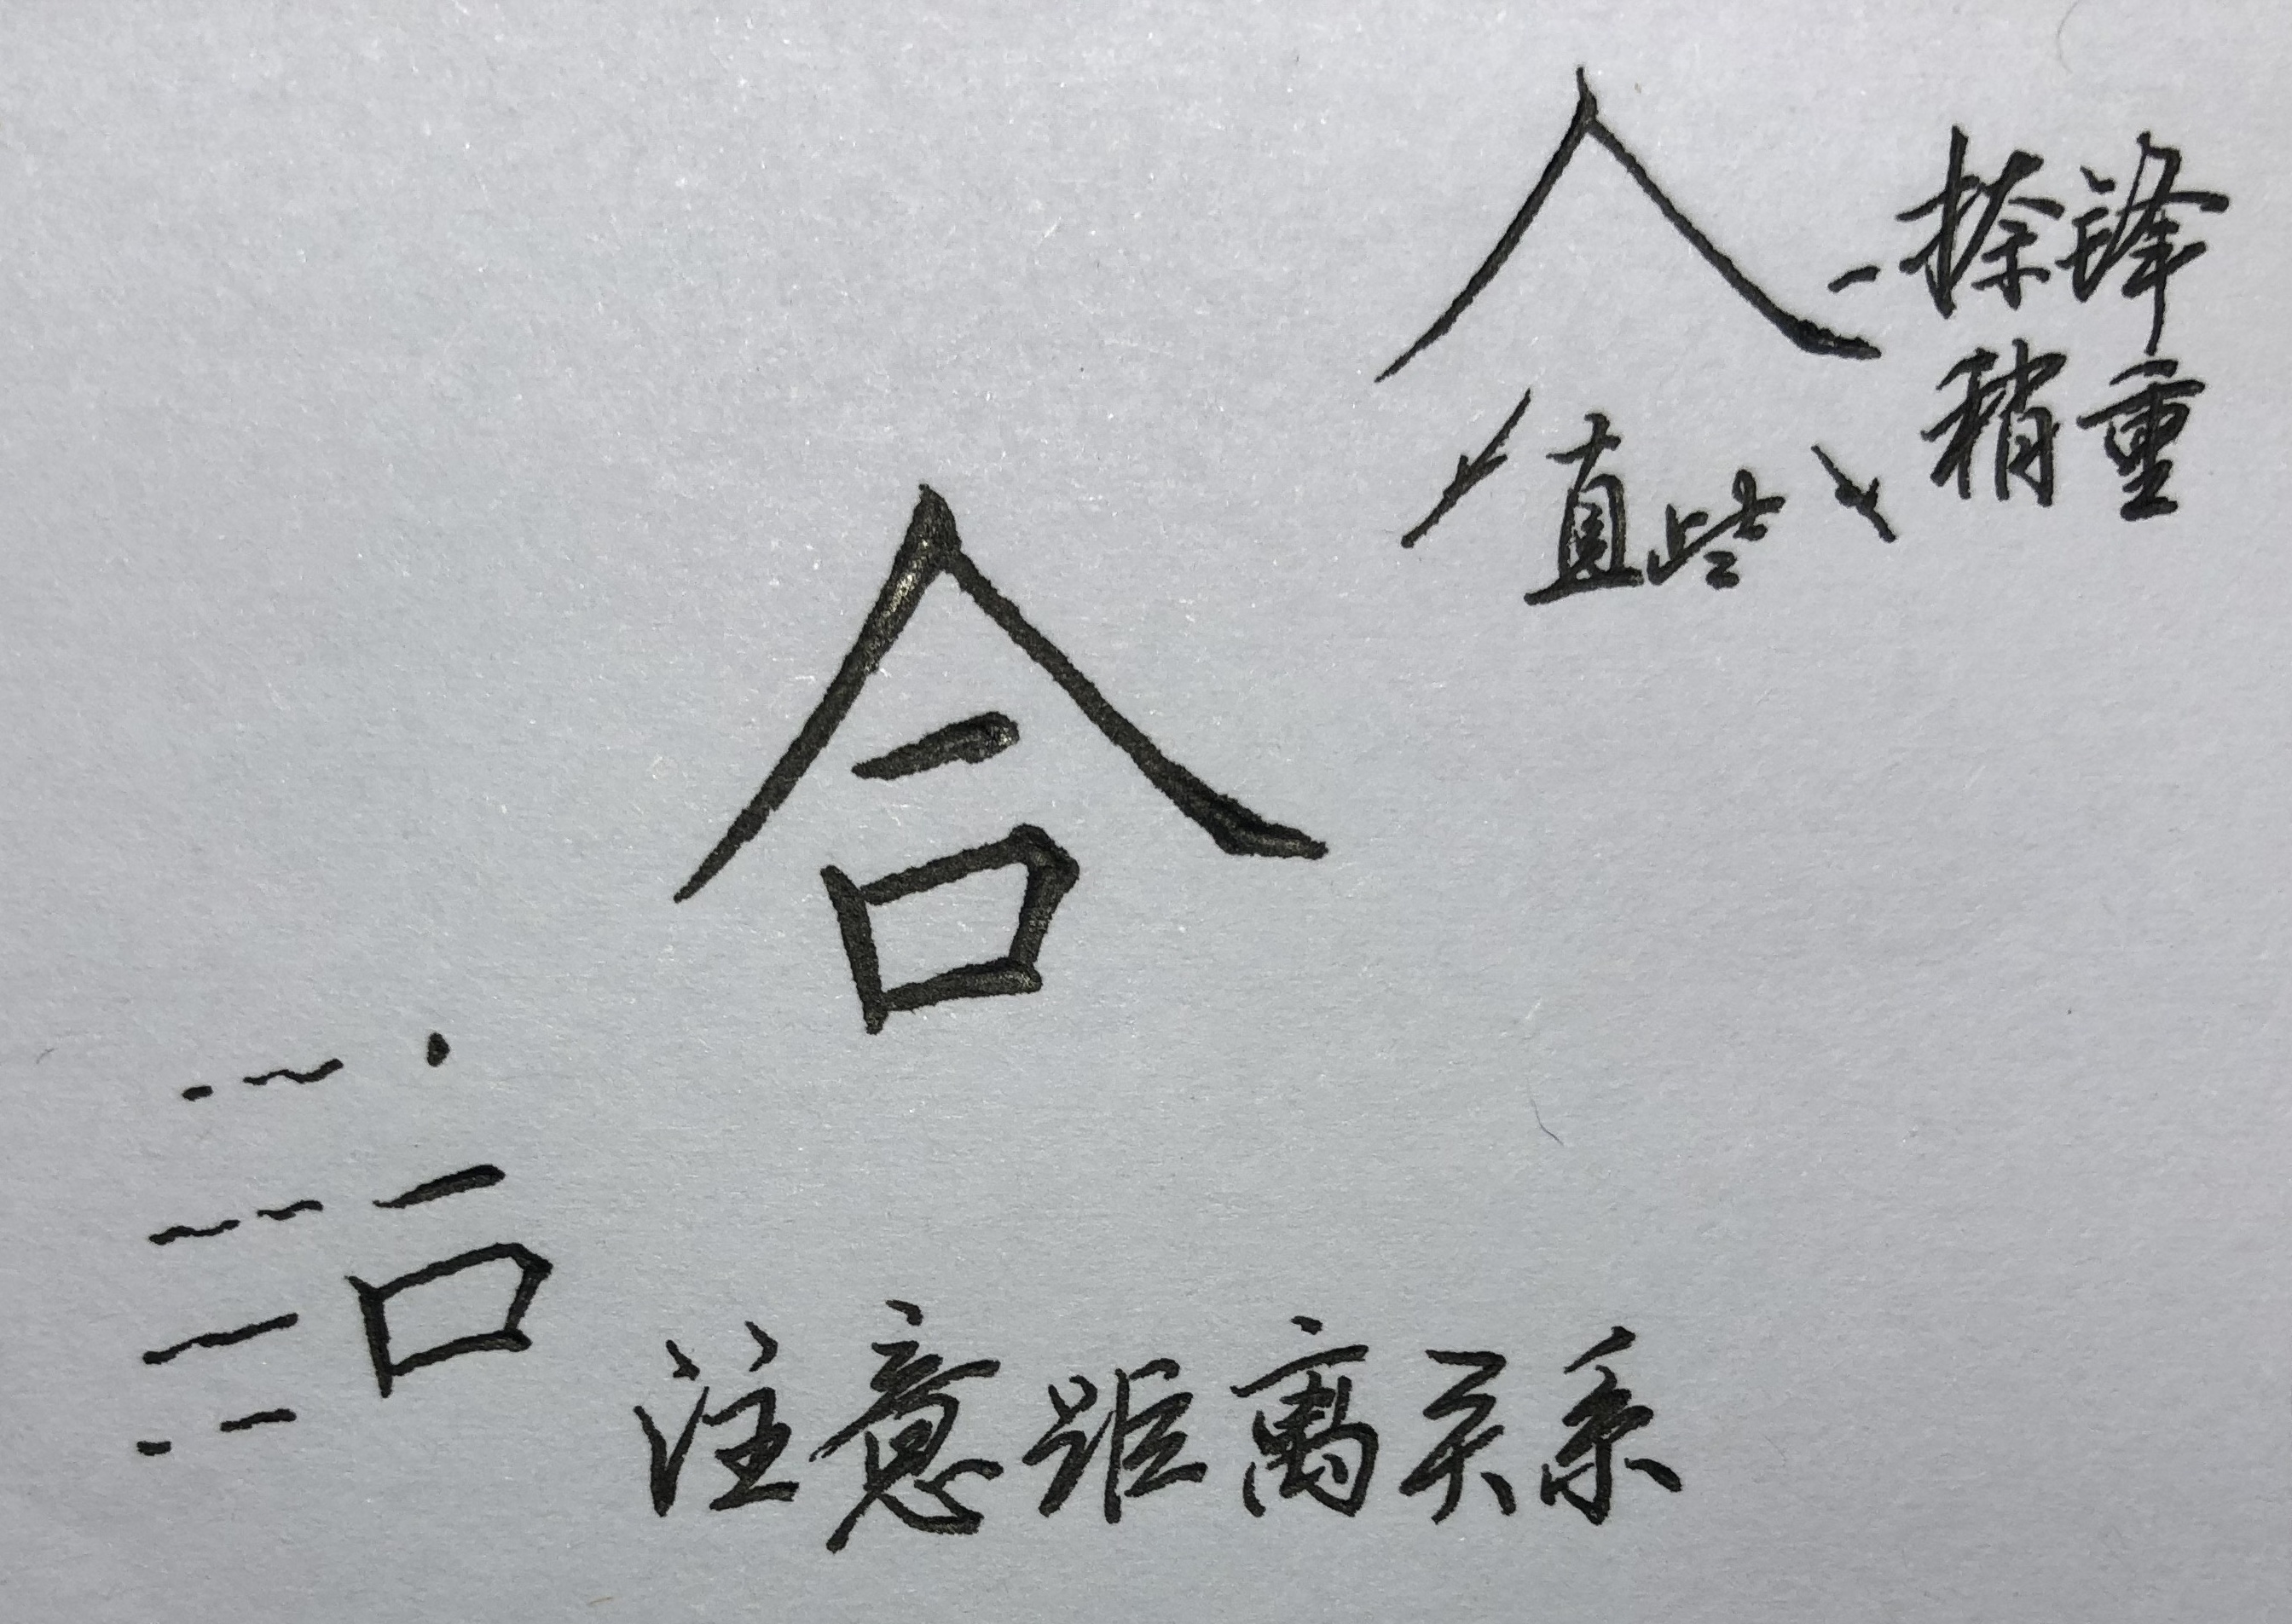 人
捺锋
稍重
直些
合
注意距离关系